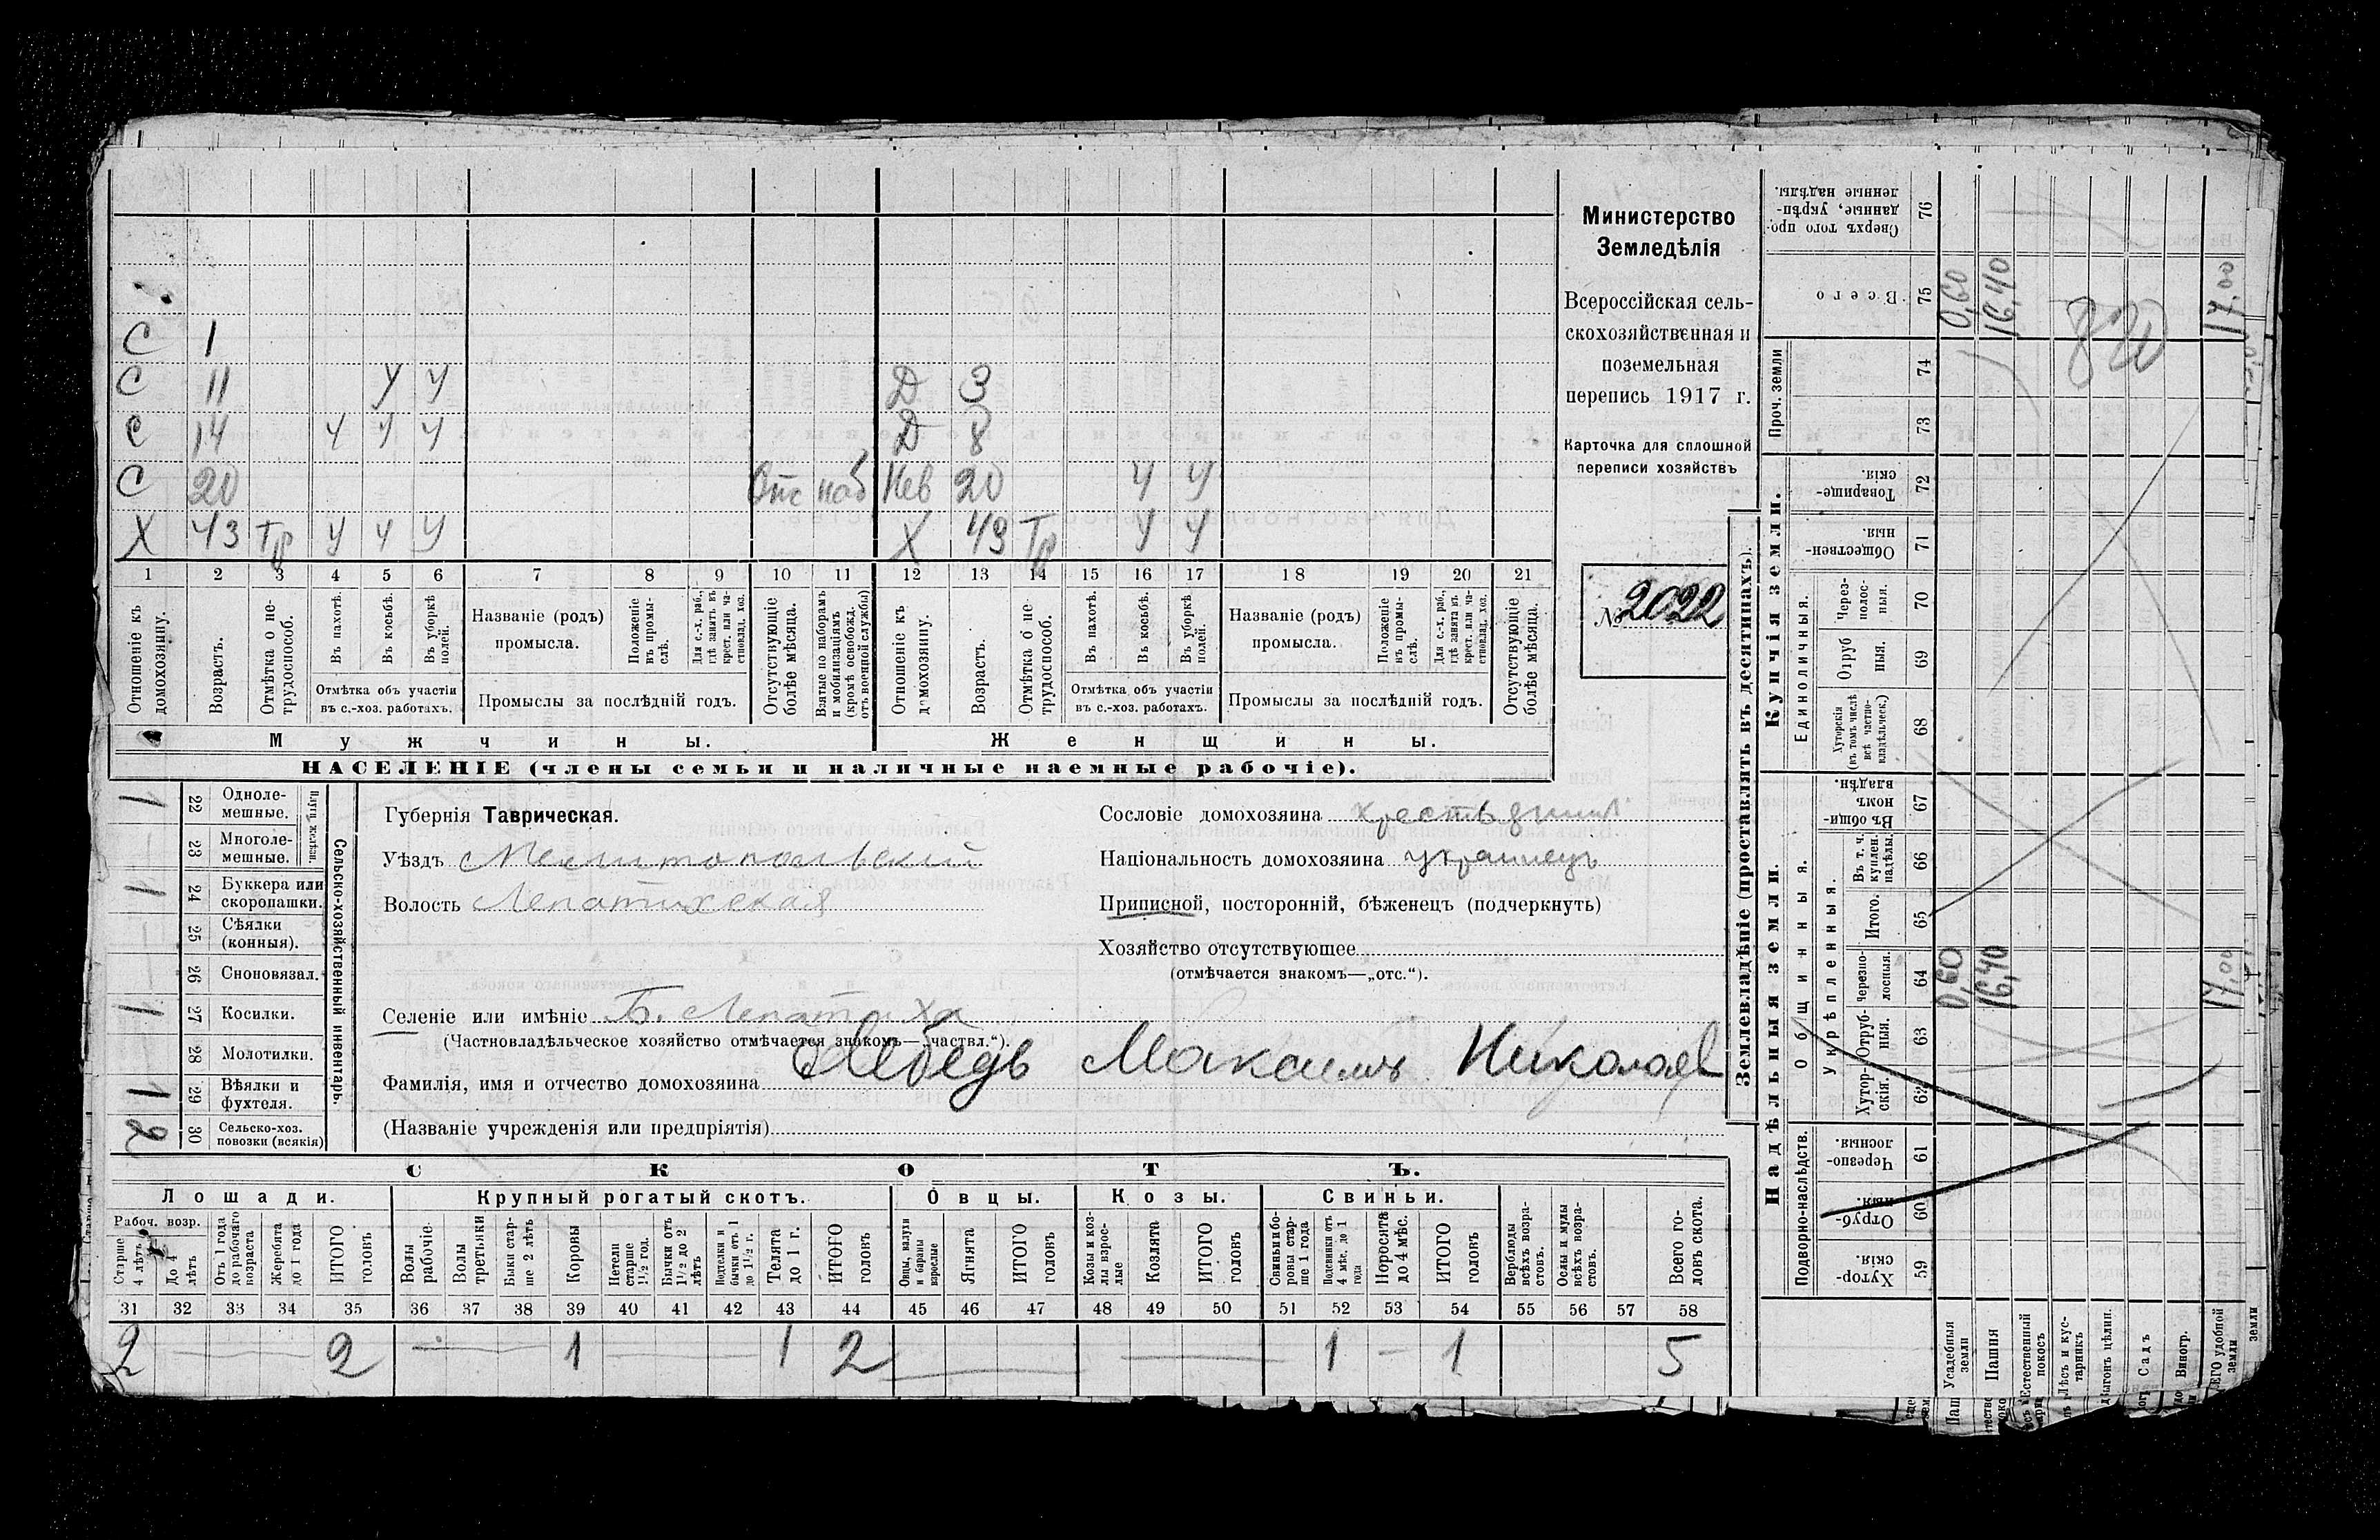 С 1
С 11 У У Д 3
С 14 У У У Д 8
С 20 Отс наб Нев 20 У У
Х 43 Тр У У У Х 43 Тр У У
1 2 3 4 5 6 7 8 9 10 11 12 13 14 15 16 17 18 19 20 21
Отношеніе къ домохозяину.
Возрастъ.
Отмѣтка о не-
трудоспособ.
Въ пахотѣ.
Въ косьбѣ.
Въ уборкѣ
полей.
Отмѣтка объ участіи
въ с.-хоз. работахъ.
Названіе (родъ)
промысла.
Положеніе
въ промы-
слѣ.
Для с.-х. раб.,
гдѣ занятъ въ
крест. или ча-
стновлад. хоз.
Промыслы за послѣдній годъ.
Отсутствующіе
болѣе мѣсяца.
Взятые по наборамъ
и мобилизаціямъ
(кромѣ освобожд.
отъ военной службы)
Отношеніе къ
домохозяину.
Возрастъ.
Отмѣтка о не
трудоспособ.
Въ пахотѣ.
Въ косьбѣ.
Въ уборкѣ
полей.
Отмѣтка объ участіи
въ с.-хоз. работахъ.
Названіе (родъ)
промысла.
Положеніе
въ промы-
слѣ.
Для с.-х. раб.,
гдѣ занята въ
крест. или ча-
стновлад. хоз.
Промыслы за послѣдній годъ.
Отсутствующіе
болѣе мѣсяца.
Мужчины. Женщины.
НАСЕЛЕНІЕ (члены семьи и наличные наемные рабочіе).
Министерство
Земледѣлія
Всероссійская сель-
скохозяйственная и
поземельная
перепись 1917 г.
Карточка для сплошной
переписи хозяйствъ
№ 2022
Сельско-хозяйственный инвентарь.
Плуги желѣзн.
1 22 Одноле-
мешные.
23 Многоле-
мешные.
1 24 Буккера или
скоропашки.
25 Сѣялки
(конныя).
26 Сноповязал.
1 27 Косилки.
28 Молотилки.
1 29 Вѣялки и
фухтеля.
2 30 Сельско-хоз.
повозки (всякія)
Губернія Таврическая.
Уѣздъ Мелитопольскій
Волость Лепатихская
Селеніе или имѣніе Б. Лепатиха
(Частновладѣльческое хозяйство отмѣчается знакомъ—„частвл.“).
Фамилія, имя и отчество домохозяина Лебедь Максимъ Николаев
(Названіе учрежденія или предпріятія)
Сословіе домохозяина крестьянинъ
Національность домохозяина украинецъ
Приписной, посторонній, бѣженецъ (подчеркнуть)
Хозяйство отсутствующее
(отмѣчается знакомъ—„отс.“).
СКОТЪ.
Лошади. Крупный рогатый скотъ. Овцы. Козы. Свиньи.
Рабоч. возр.
Старше
4 лѣтъ
До 4
лѣтъ
Отъ 1 года
до рабочаго
возраста
Жеребята
до 1 года
ИТОГО
головъ
Волы
рабочіе
Волы
третьяки
Быки стар-
ше 2 лѣтъ
Коровы
Нетели
старше
1½ год.
Бычки отъ
1½ до 2
лѣтъ
Подтелки и
бычки отъ 1
до 1½ г.
Телята
до 1 г.
ИТОГО
головъ
Овцы, валухи
и бараны
взрослые
Ягнята
ИТОГО
головъ
Козы и коз-
лы взрос-
лые
Козлята
ИТОГО
головъ
Свиньи и бо-
ровы стар-
ше 1 года
Подсвинки отъ
4 мѣс. до 1
года
Поросята
до 4 мѣс.
ИТОГО
головъ
Верблюды
всѣхъ возра-
стовъ.
Ослы и мулы
всѣхъ возра-
стовъ.
Всего го-
ловъ скота.
31 32 33 34 35 36 37 38 39 40 41 42 43 44 45 46 47 48 49 50 51 52 53 54 55 56 57 58
2 — 2 — 1 — 1 2 — — 1 — 1 5
Землевладѣніе (проставлять въ десятинахъ).
Надѣльныя земли. Купчія земли.
Подворно-наслѣдств.
Общинныя.
Укрѣпленныя.
Единоличныя.
Проч. земли
Хутор-
скія. 59
Отруб-
ныя. 60
Черезпо-
лосныя. 61
Хутор-
скія. 62
Отруб-
ныя. 63
Черезпо-
лосныя. 64
Итого. 65
Въ т. ч.
куплен.
надѣлы. 66
Въ общи-
номъ
владѣн. 67
Хуторскія
(въ томъ числѣ
всѣ частно-
владѣльческ.) 68
Отруб
ныя. 69
Через-
полос-
ныя. 70
Обществен-
ныя. 71
Товарище-
скія. 72
73
74
Всего 75
Сверхъ того про-
данные, укрѣп-
ленные надѣлы. 76
Усадебныя
земли 0,60 0,60
Пашня 16,40 16,40
Естественный
покосъ
Лѣсъ и кус-
тарникъ
Выгонъ цѣлин.
Садъ
Виногр.
ВСЕГО удобной
земли 17,00 17,00
820